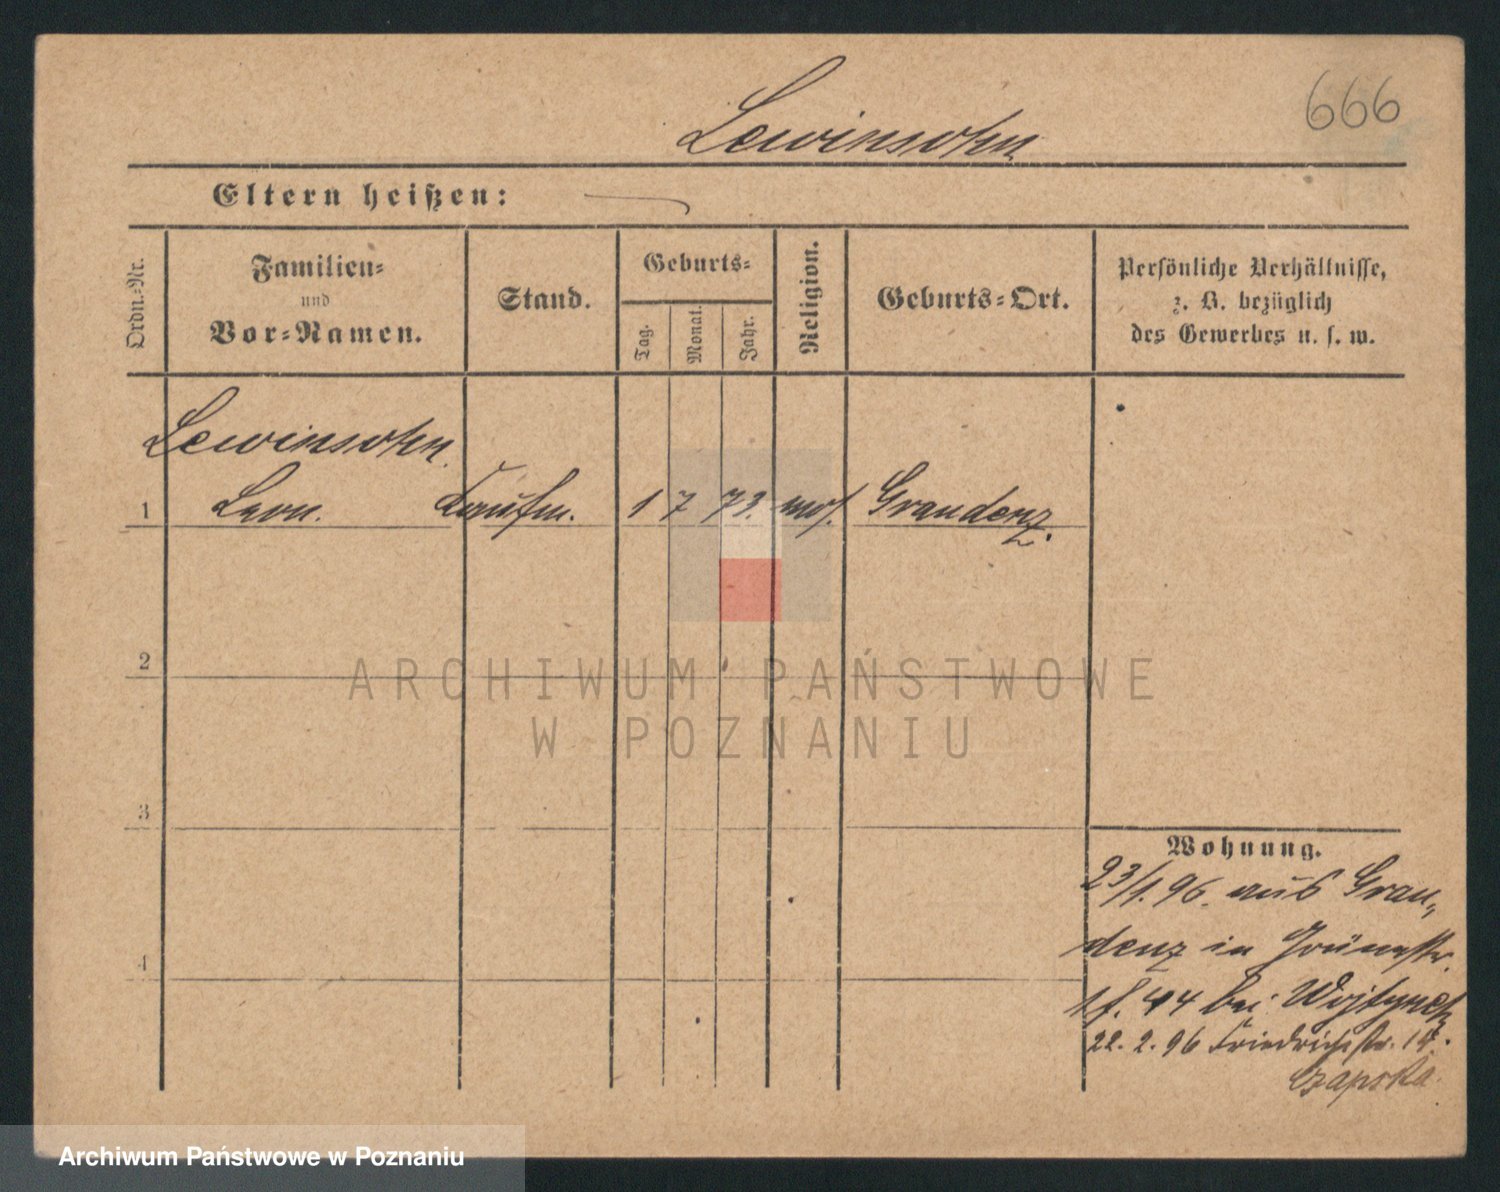 666
Lewinsohn
Eltern heißen:
Ordn.-Nr.
Familien-
und
Vor-Namen.
Stand.
Geburts-
Tag.
Monat.
Jahr.
Religion.
Geburts-Ort.
Persönliche Verhältnisse,
z. B. bezüglich
des Gewerbes u. s. w.
Lewinsohn
1 Leon. Kaufm. 1 7 73. mos. Graudenz.
2
3
4
ARCHIWUM PAŃSTWOWE
W POZNANIU
Wohnung.
23/1.96. aus Grau-
denz in
44 bei
22. 2. 96 Friedrichstr.
Czapska
Archiwum Państwowe w Poznaniu